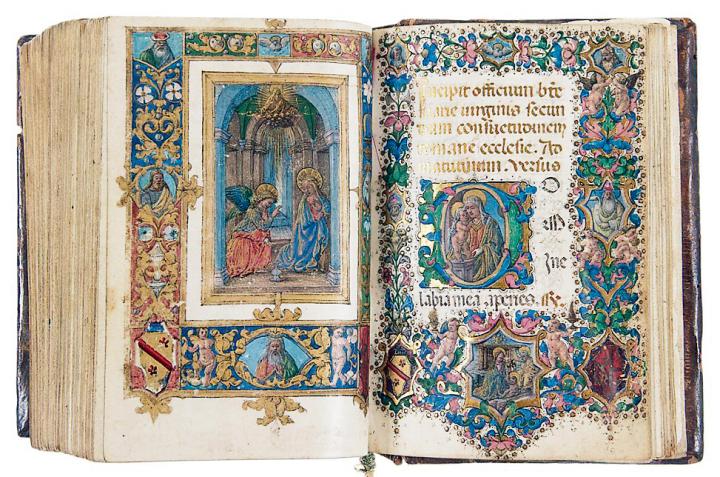 Incipit officium bte
Marie virginis secun
dum consuetudinem
romane ecclesie. Ad
matutinum. Versus
D
ne
labia mea aperies. R.